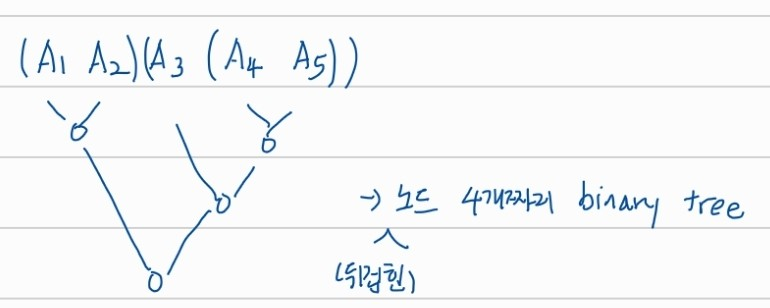 (A1 A2)(A3 (A4 A5))
→ 노드 4개짜리 binary tree
(뒤집힌)